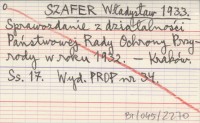 SZAFER Władysław 1933.
Sprawozdanie z działalności
Państwowej Rady Ochrony Przy-
rody w roku 1932. – Kraków.
Ss. 17. Wyd. PROP nr 34.
Br/045/2270